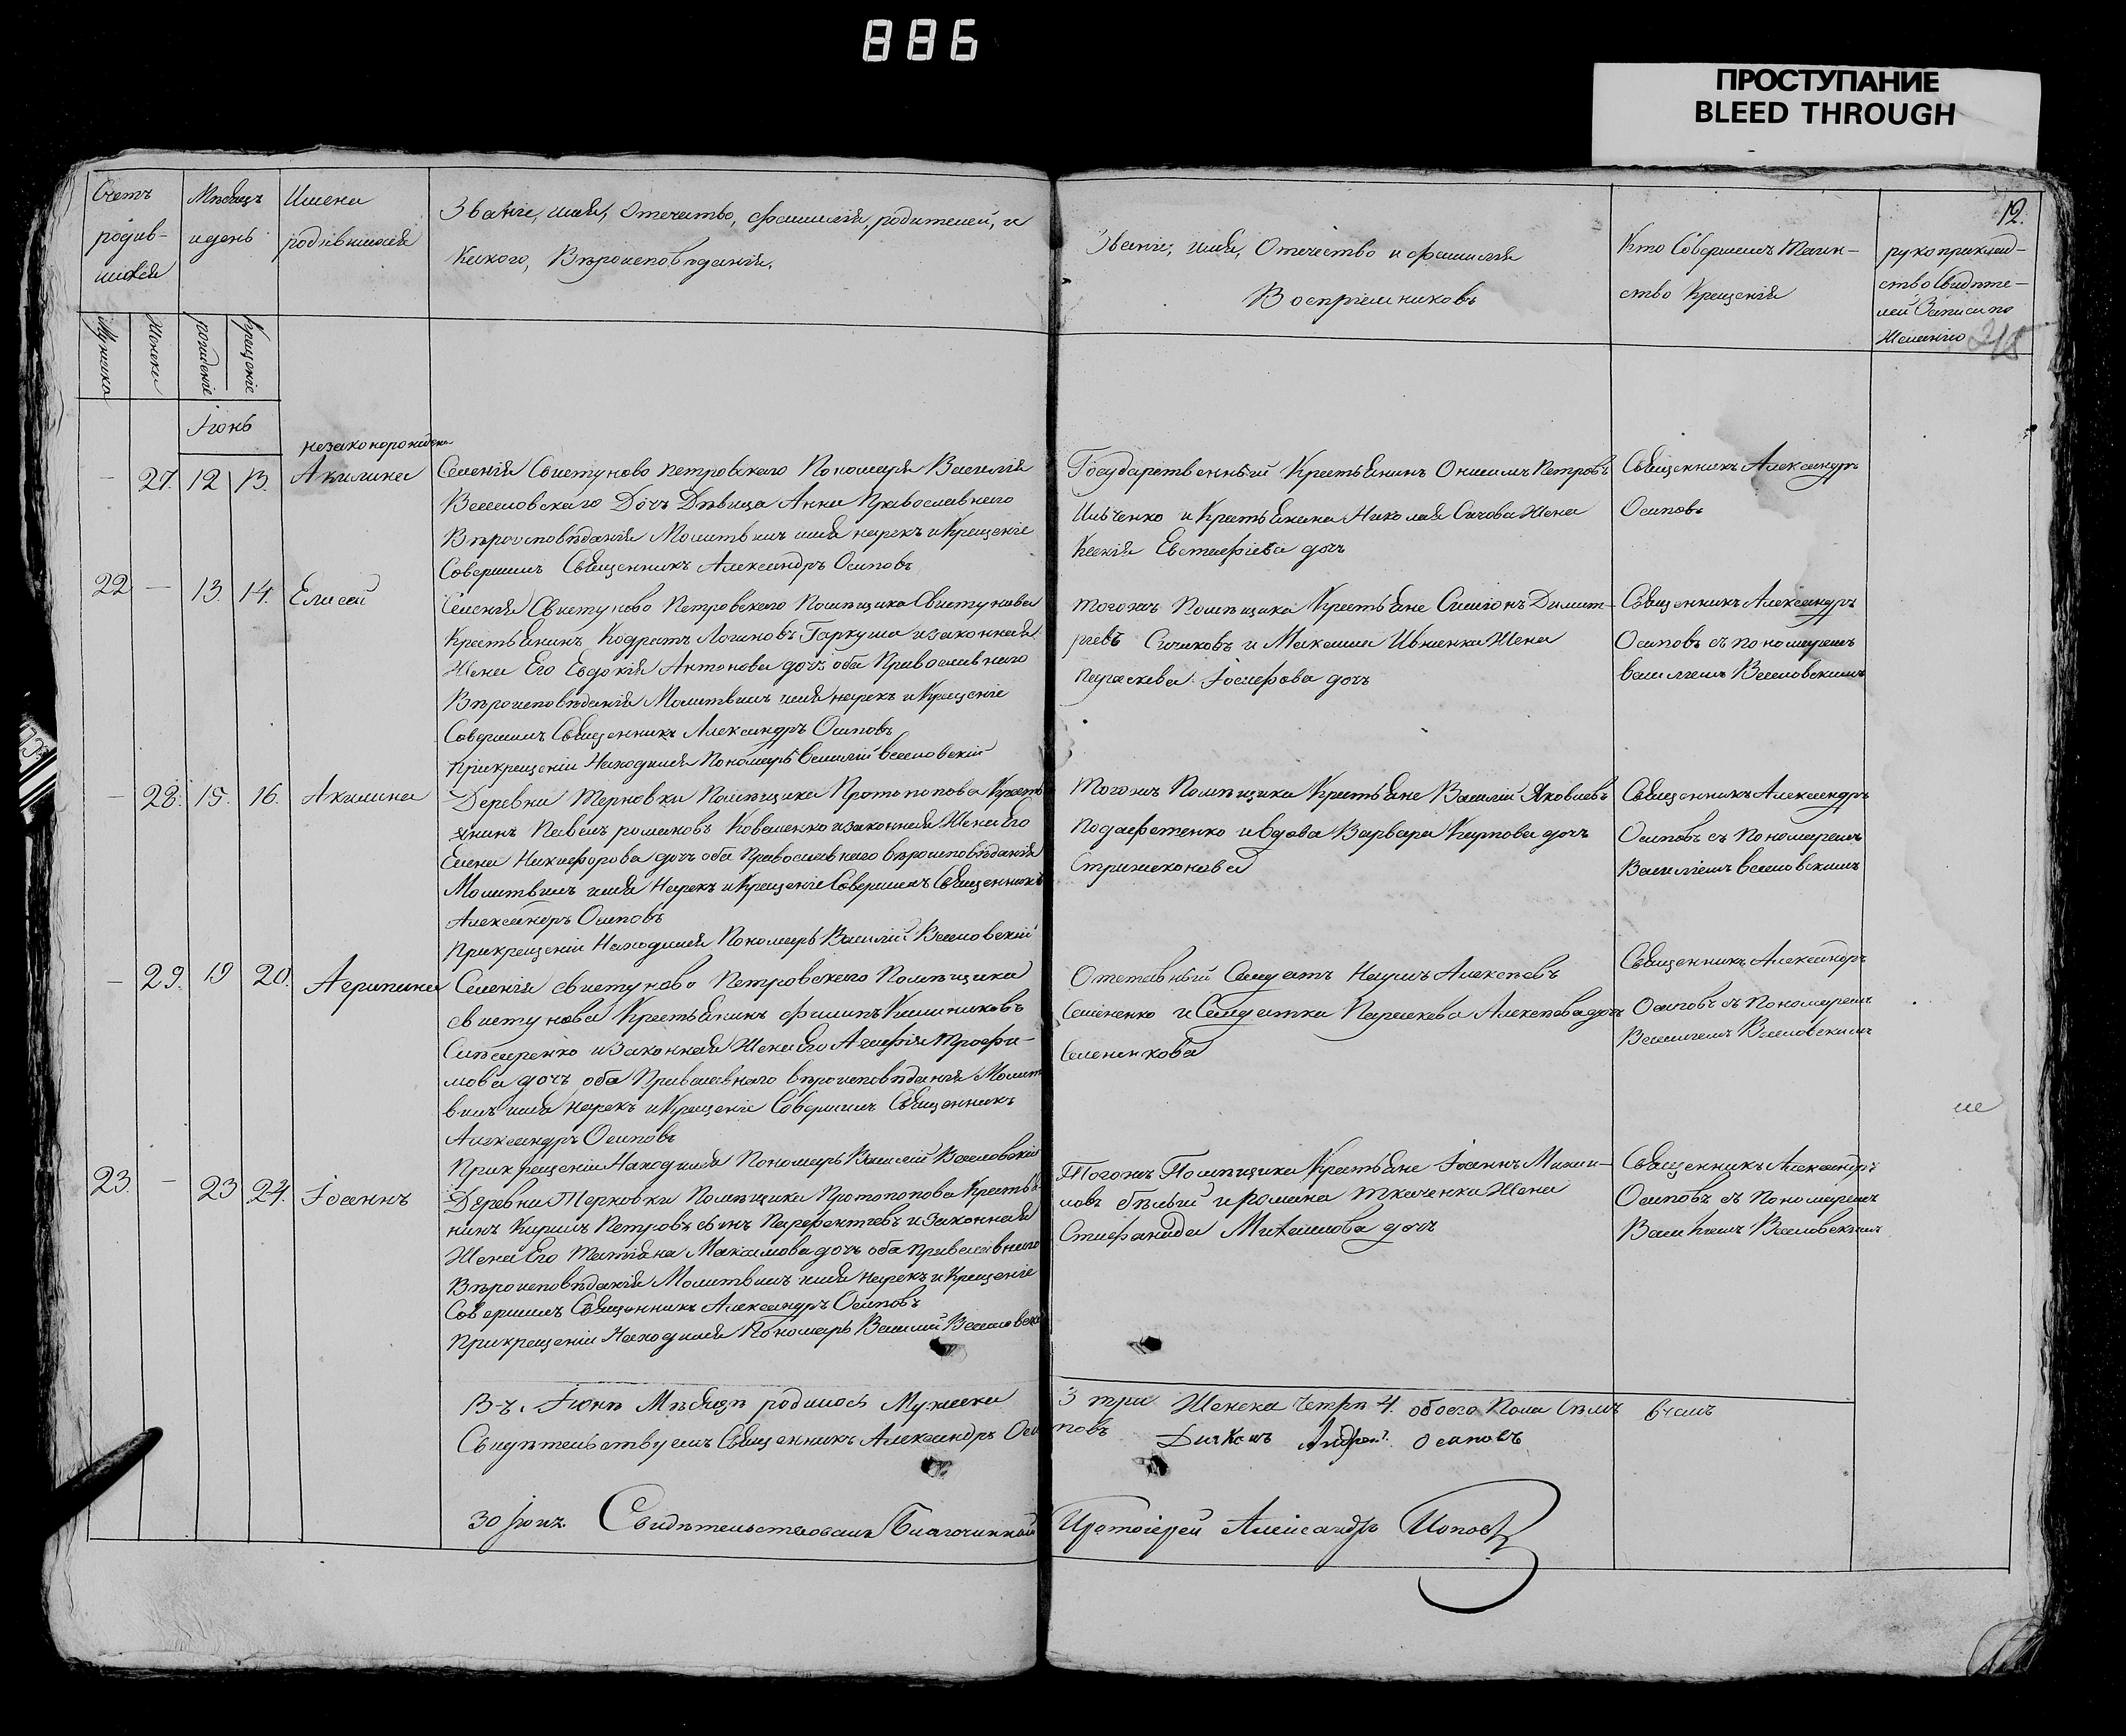 886
ПРОСТУПАНИЕ
BLEED THROUGH
12.
Счетъ
родив-
шихся
Мѣсяцъ
и день
Имена
родившихся
Званіе, имя, Отечество, фамилія, родителей, и
Какого, Вѣроисповѣданія,
Званіе, имя, Отечество и фамилія
Воспріемниковъ
Кто Совершалъ Таин-
ство Крещенія
рукоприклад-
ство Свидѣте-
лей Записи по
Желанію
Мужска
Женска
рожденіе
Крещеніе
Іюнь
незаконорожденна
27. 12 13. Акилина
Селенія Свистуново Петровскаго Пономаря Василія
Веселовскаго Дочъ Дѣвица Анна Православнаго
Вѣроисповѣданія Молитвилъ имя нарекъ и Крещеніе
Совершилъ Священникъ Александръ Осиповъ
Государственный Крестьянинъ Онисимъ Петровъ
Ильченко и Крестьянина Николая Сичова Жена
Ксенія Евстафіева дочъ
Священникъ Александръ
Осиповъ
22 — 13. 14. Елисей
Селенія Свистуново Петровского Помѣщика Свистунова
Крестьянинъ Кодратъ Логиновъ Гаркуша и законная
Жена Его Евдокія Антонова дочъ оба Православнаго
Вѣроисповѣданія Молитвилъ имя нарекъ и Крещеніе
Совершилъ Священникъ Александръ Осиповъ
Прикрещеніи Находился Пономарь Василій Веселовскій
тогожъ Помѣщика Крестьяне Симіонъ Димит-
ріевъ Сичиковъ и Максима Ивненка Жена
Параскева Іосифова дочъ
Священникъ Александръ
Осиповъ съ пономаремъ
василіемъ Веселовскимъ
— 28. 15. 16. Акилина
Деревни Терновки Помѣщика Протопопова Кресть
янинъ Павелъ романовъ Коваленко и законная Жена Его
Елена Никифорова дочъ оба Православнаго вѣроисповѣданія
Молитвилъ имя Нарекъ и Крещеніе Совершилъ Священникъ
Александръ Осиповъ
Прикрещеніи Находился Пономарь Василій Веселовскій
Тогожъ Помѣщика Крестьяне Василій Яковлевъ
Подафетенко и вдова Варвара Карпова дочъ
Стрижаконова
Священникъ Александръ
Осиповъ съ Пономаремъ
Василіемъ веселовскимъ
— 29. 19 20. Агрипина
Селенія свистуново Петровского Помѣщика
свистунова Крестьянинъ филипъ Калиниковъ
и Законная Жена Его Агафія Трофи-
мова дочъ оба Православнаго вѣроисповѣданія Молит
вилъ имя нарекъ и Крещеніе Совершилъ Священникъ
Александръ Осиповъ
Прикрещеніи Находился Пономарь Василій Веселовскій
Отставный Салдатъ Наумъ Алексѣевъ
Семененко и Салдатка Параскева Алексѣева дочъ
Семенькова
Священникъ Александръ
Осиповъ съ Пономаремъ
Василіемъ Веселовскимъ
23. — 23 24. Іоаннъ
Деревни Терновки Помѣщика Протопопова Крестья
нинъ Кирилъ Петровъ сынъ Парфентіевъ и законная
Жена Его Татіана Максимова дочъ оба Православнаго
Вѣроисповѣданія Молитвилъ имя нарекъ и Крещеніе
Совершилъ Священникъ Александръ Осиповъ
Прикрещеніи Находился Пономарь Василій Веселовскій
Тогожъ Помѣщика Крестьяне Іоаннъ Михай-
ловъ бѣлый и романа ткаченка Жена
Стефанида Михайлова дочъ
Священникъ Александръ
Осиповъ съ Пономаремъ
Василіемъ Веселовскимъ
Въ. Іюнѣ Мѣсяцѣ родилось Мужеска 3 три Женска Четри 4. обоего Пола Семъ
Свидѣтельствуемъ Священникъ Александръ Осиповъ Дичкъ Андрей Осиповъ
30 Іюня Свидѣтельствовалъ Благочинный Протоіерей Александръ Поповъ